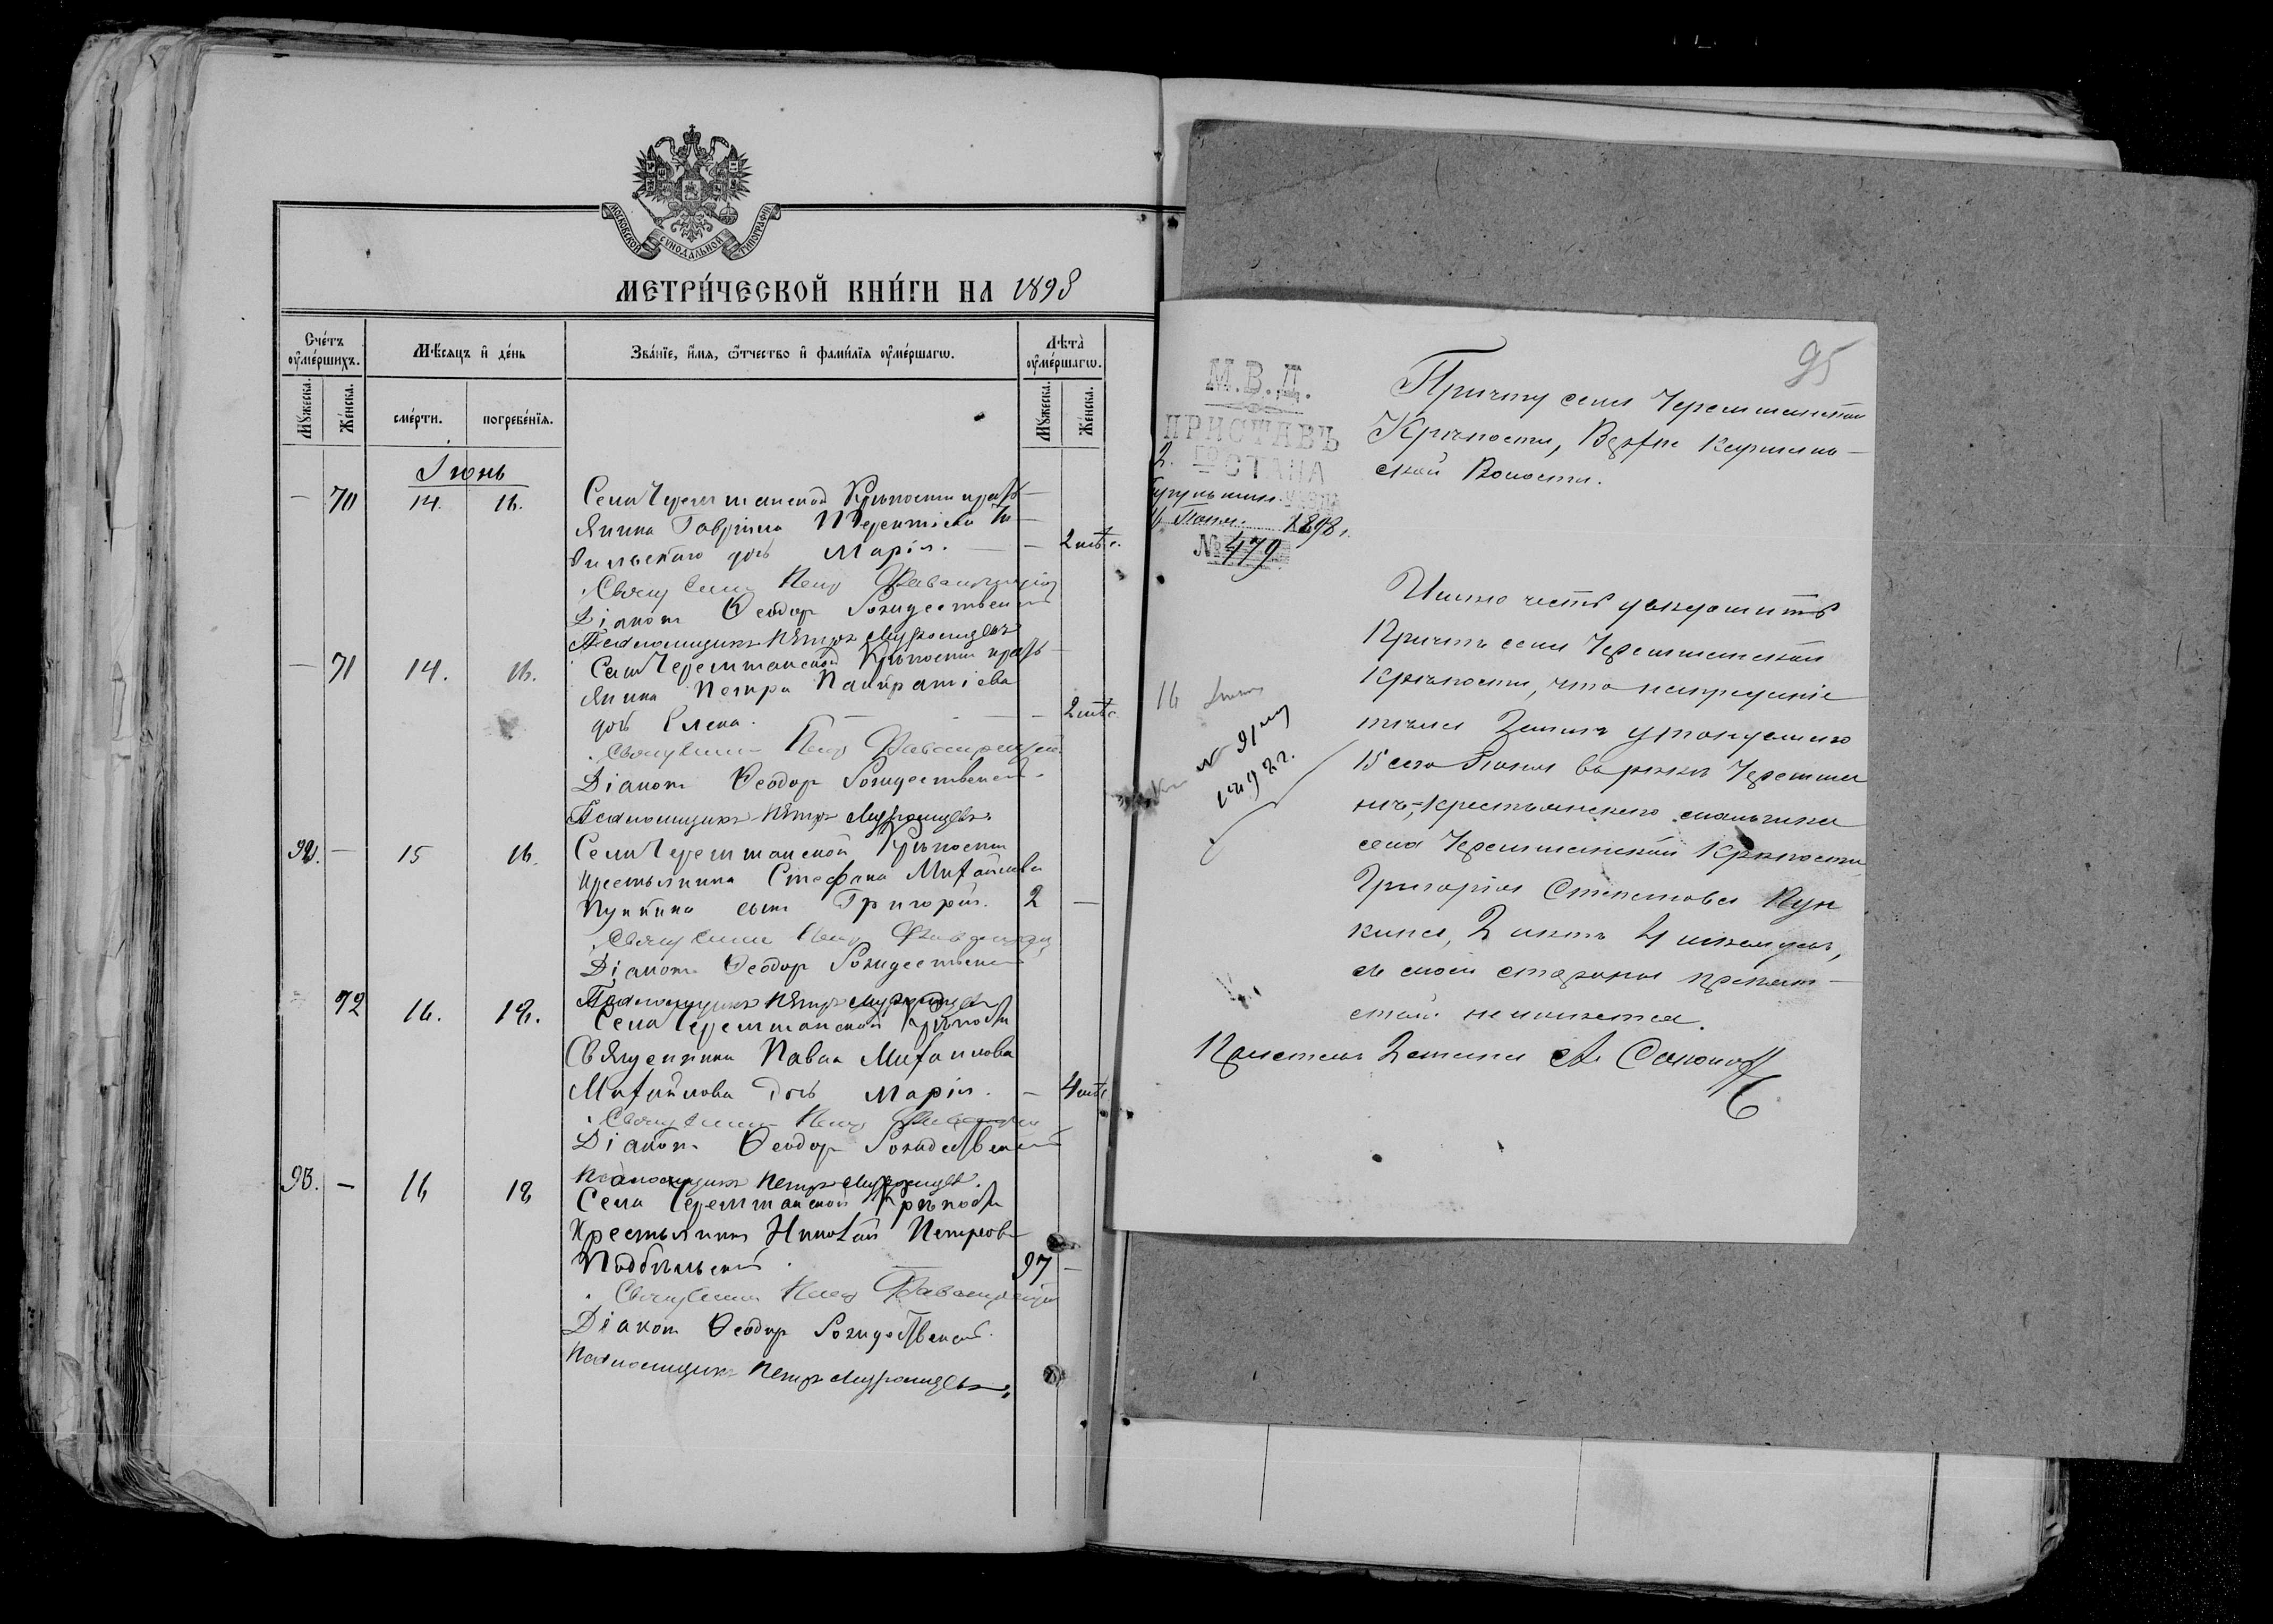 МОСКОВСКОЙ СѴНОДАЛЬНОЙ ТИПОГРАФІИ
МЕТРИ́ЧЕСКОЙ КНИ́ГИ НА 1898
Сче́тъ ᲂу҆ме́ршихъ.
Мꙋ́жеска.
Же́нска.
Мѣ́сяцъ и҆ де́нь
сме́рти.
погребе́нїя.
Зва́нїе, и҆́мя, ѻ҆́тчество и҆ фами́лїя ᲂу҆ме́ршагѡ.
Лѣта̀ ᲂу҆ме́ршагѡ.
Мꙋ́жеска.
Же́нска.
Іюнь
— 70 14. 16. Села Черемшанской Крѣпости кресть
янина Гавріила Терентіева По
бильскаго дочь Марія. — — 2 мѣс.
Священник Петр
Діакон Ѳеодор Рождественскій
Псаломщикъ Петръ Муромцевъ
— 71 14. 16. Села Черемшанской Крѣпости кресть
янина Петра Панкратіева
дочь Елена. — — 2 мѣс
Священник Петр
Діакон Ѳеодор Рождественскій
Псаломщикъ Петръ Муромцевъ
92. — 15 16. Села Черемшанской Крѣпости
крестьянина Стефана Михайлова
Пункина сын Григорій. 2 —
Священник Петр
Діакон Ѳеодор Рождественскій
Псаломщикъ Петръ Муромцевъ
— 72 16. 18. Села Черемшанской Крѣпости
Священника Павла Михаилова
Михайлова дочь Марія. — 4 мѣс
Священник Петр
Діакон Ѳеодор Рождественскій
Псаломщикъ Петръ Муромцевъ.
93. — 16 18 Села Черемшанской Крѣпости
Крестьянинъ Николай Петров
Подбѣльскій. 97 —
Священник Петр
Діакон Ѳеодор Рождественскій.
Псаломщикъ Петръ Муромцевъ
95
М.В.Д.
ПРИСТАВЪ
2. ГО СТАНА
Бугульмин. УѢЗДА
Іюня 1898 г.
№ 479
Причту села Черемшанской
Крѣпости,
ской Волости.
Имѣю честь увѣдомить
Причтъ села Черемшанской
Крѣпости, что къ преданію
тѣла землѣ утонувшаго
15 сего Іюня въ рѣкѣ Черемша
нѣ, крестьянскаго мальчика
села Черемшанской Крѣпости
Григорія Степанова Пун
кина, 2 лѣтъ,
съ моей стороны препят-
ствій не имѣется.
Приставъ 2 стана
16 Іюня